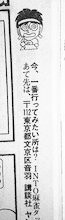 今、一番行ってみたい所は?NTO麻雀タ
あて先は、〒112東京都文京区音羽 講談社 ヤ